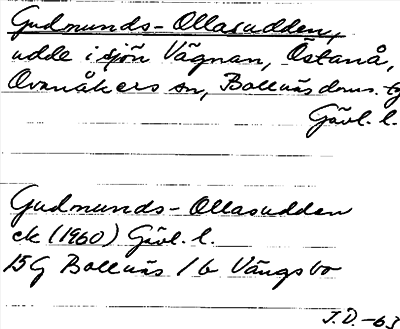 Gudmunds-Ollasudden,
udde i sjön Vägnan, Östanå,
Ovanåkers sn, Bollnäs doms. tg
Gävl. l.
Gudmunds-Ollasudden
ek (1960) Gävl. l.
15G Bollnäs 1 b Vängsbo
J.D. -63